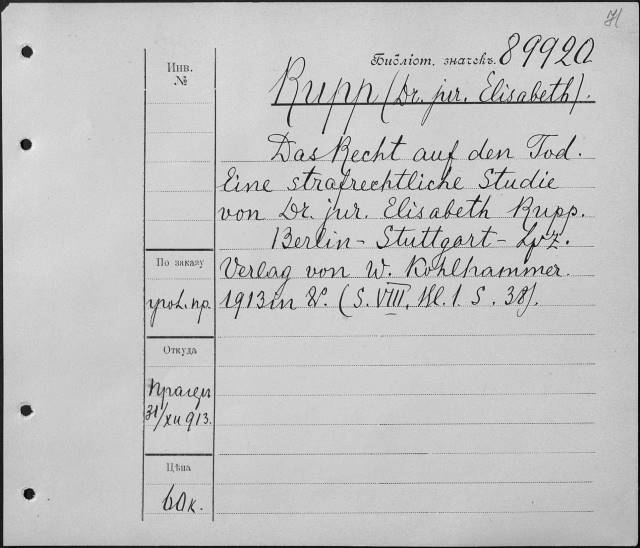 71
Библіот. значекъ. 89920
Инв.
№
Rupp (Dr. jur. Elisabeth).
Das Recht auf den Tod.
Eine strafrechtliche Studie
von Dr. jur. Elisabeth Rupp.
Berlin - Stuttgart - Lpz.
По заказу
Verlag von W. Kohlhammer.
угол. пр.
1913 in 8°. (S. VIII, Bl. 1. S. 38).
Откуда
31/XII 913.
Цѣна
60 к.